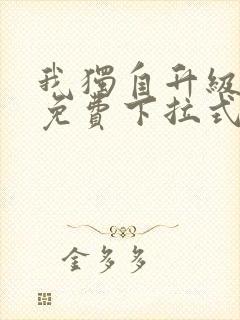 我獨自升級
免費下拉式
金多多